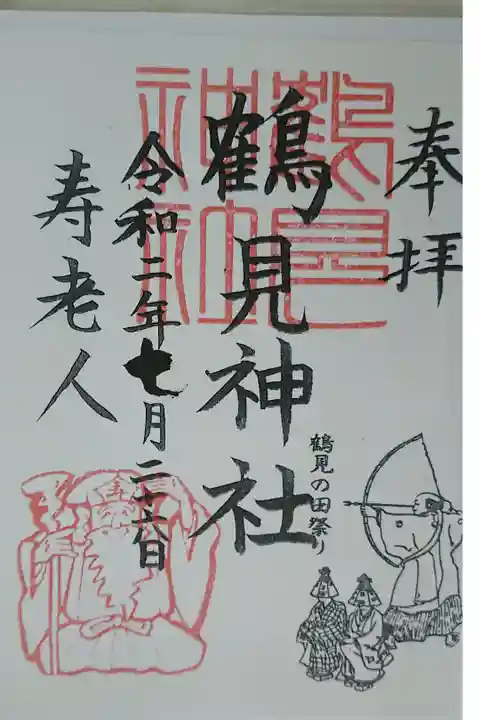 奉拝
鶴見神社
鶴見の田祭り
令和二年七月二十六日
寿老人
鶴見
神社